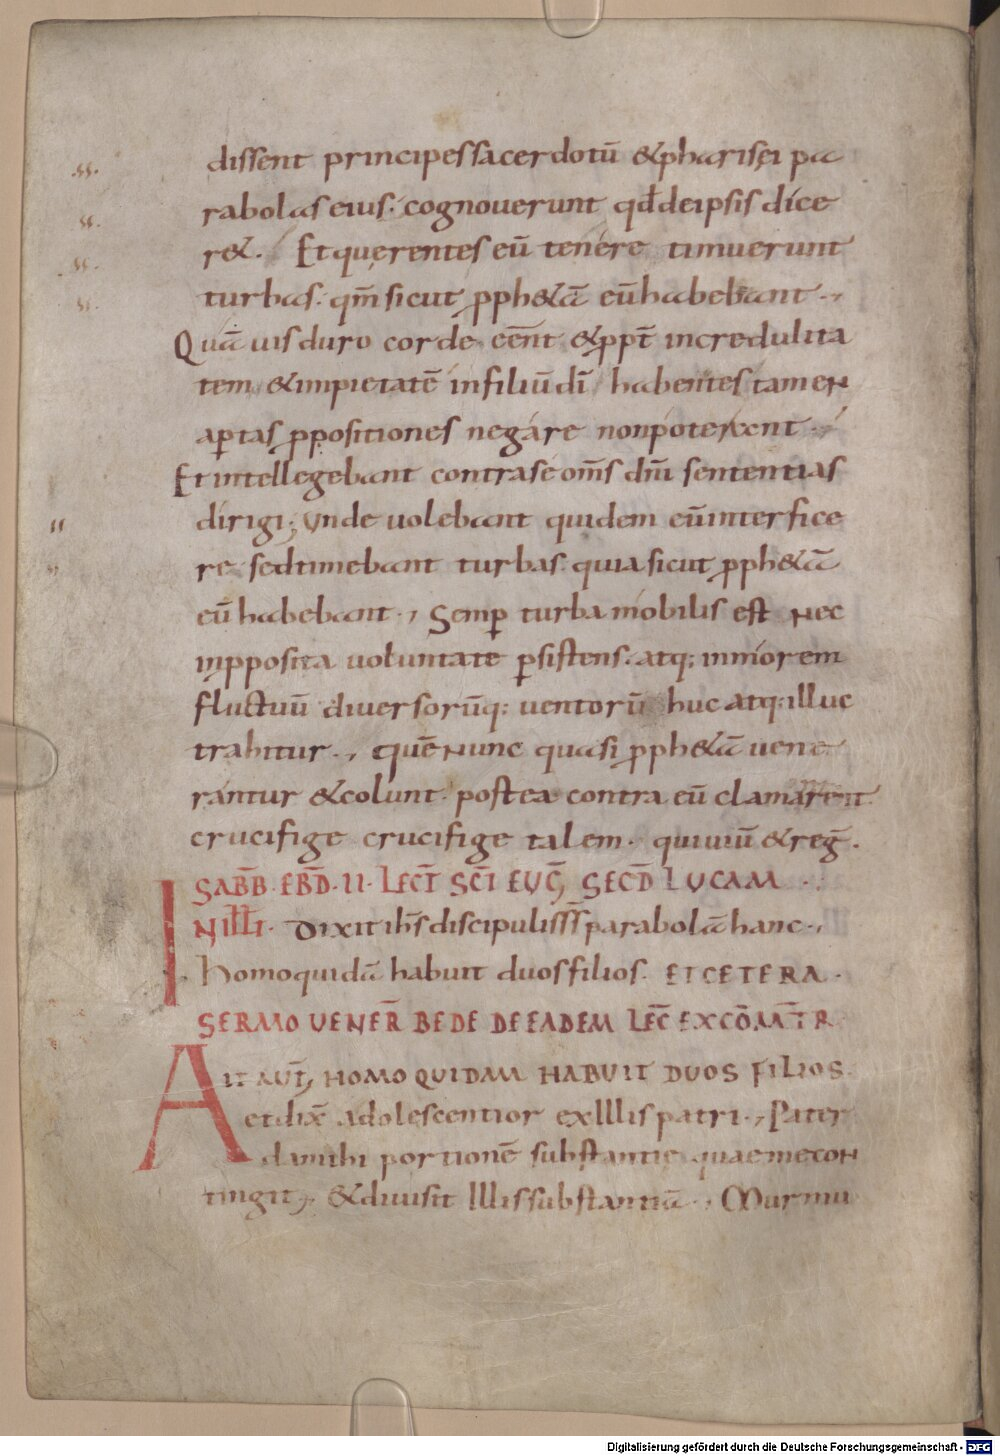 dissent principes sacerdotū & pharisęi pa
rabolas eius. cognoverunt qđ de ipsis dice
r&. Et quęrentes eū tenére timuerunt
turbas. qm̄ sicut pph&ā eū habebant.,
Quāvis duro corde eēnt & ppt̄ incredulita
tem & impietatē in filiū dī habentes tamen
aptas ppositiones negáre non poterant.
Et intellegebant contra sé om̄s dn̄i sententias
dirigi; unde volebant quidem eū interfice
re sed timebant turbas. quia sicut pph&ā
eū habebant., Semp turba mobilis est nec
in pposita voluntate psistens. atq; in morem
fluctuū diversorūq; ventorū huc atq; illuc
trahitur., quē nunc quasi pph&ā vene
rantur & colunt. postea contra eū clamarent
crucifige crucifige talem. qui viū & reḡ.
SABB̄. EBD̄. II. LECT̄ SCĪ EVḠ, SECD̄ LUCAM
IN ILLI. Dixit ihs̄ discipulis s̄s̄ parabolā hanc.,
Homo quidā habuit duos filios. ET CETERA.
SERMO VENER̄ BEDE DE EADEM LEC̄ EX COM̄TR̄
AIT AUT̄, HOMO QUIDAM HABUIT DUOS FILIOS.
et dix̄ adolescentior ex illis patri., Pater
da mihi portionē substantię quae me con
tingit, & divisit illis substantiā., Murmu
Digitalisierung gefördert durch die Deutsche Forschungsgemeinschaft - DFG